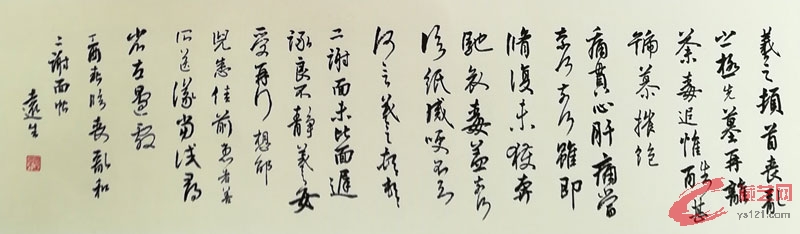 羲之頓首喪亂
之極先墓再離
荼毒追惟酷甚
號慕摧絕
痛貫心肝痛當
柰何柰何雖即
脩復未獲奔
馳哀毒益柰何
臨紙感哽不知
何言羲之頓首頓首
二謝面未比面遲
詠良不靜羲之女
愛再拜想邰
兒悉佳前患者善
所送議當試尋
省左邊劇
丁酉春臨喪亂和
二謝面帖
遠生
艺网
ys121.com